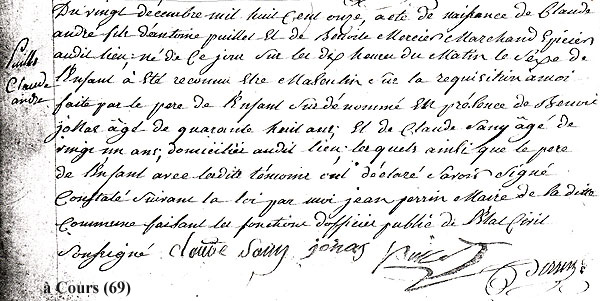 Du vingt décembre mil huit cent onze, acte de naissance de Claude
andré fils d'antoine puillet Et de Benoite Mercier Marchand Epicier
audit lieu: né de Ce jour sur les dix heures du Matin le Sexe de
l'Enfant à Eté reconnu Etre Masculin sur la requisition a moi
faite par le pere de l'Enfant Susdénommé En présence de Benoit
jonas âgé de quarante huit ans; Et de Claude Sany âgé de
vingt un ans, domiciliés audit lieu; lesquels ainsi que le pere
de l'Enfant avec lesdits temoins ont déclaré Savoir Signé
Constaté Suivant la loi par moi jean perrin Maire de la ditte
Commune faisant les fonctions d'officier public de l'Etat Civil
Soussigné Claude Sany jonas Perrin
puillet
Claude
andré
à Cours (69)